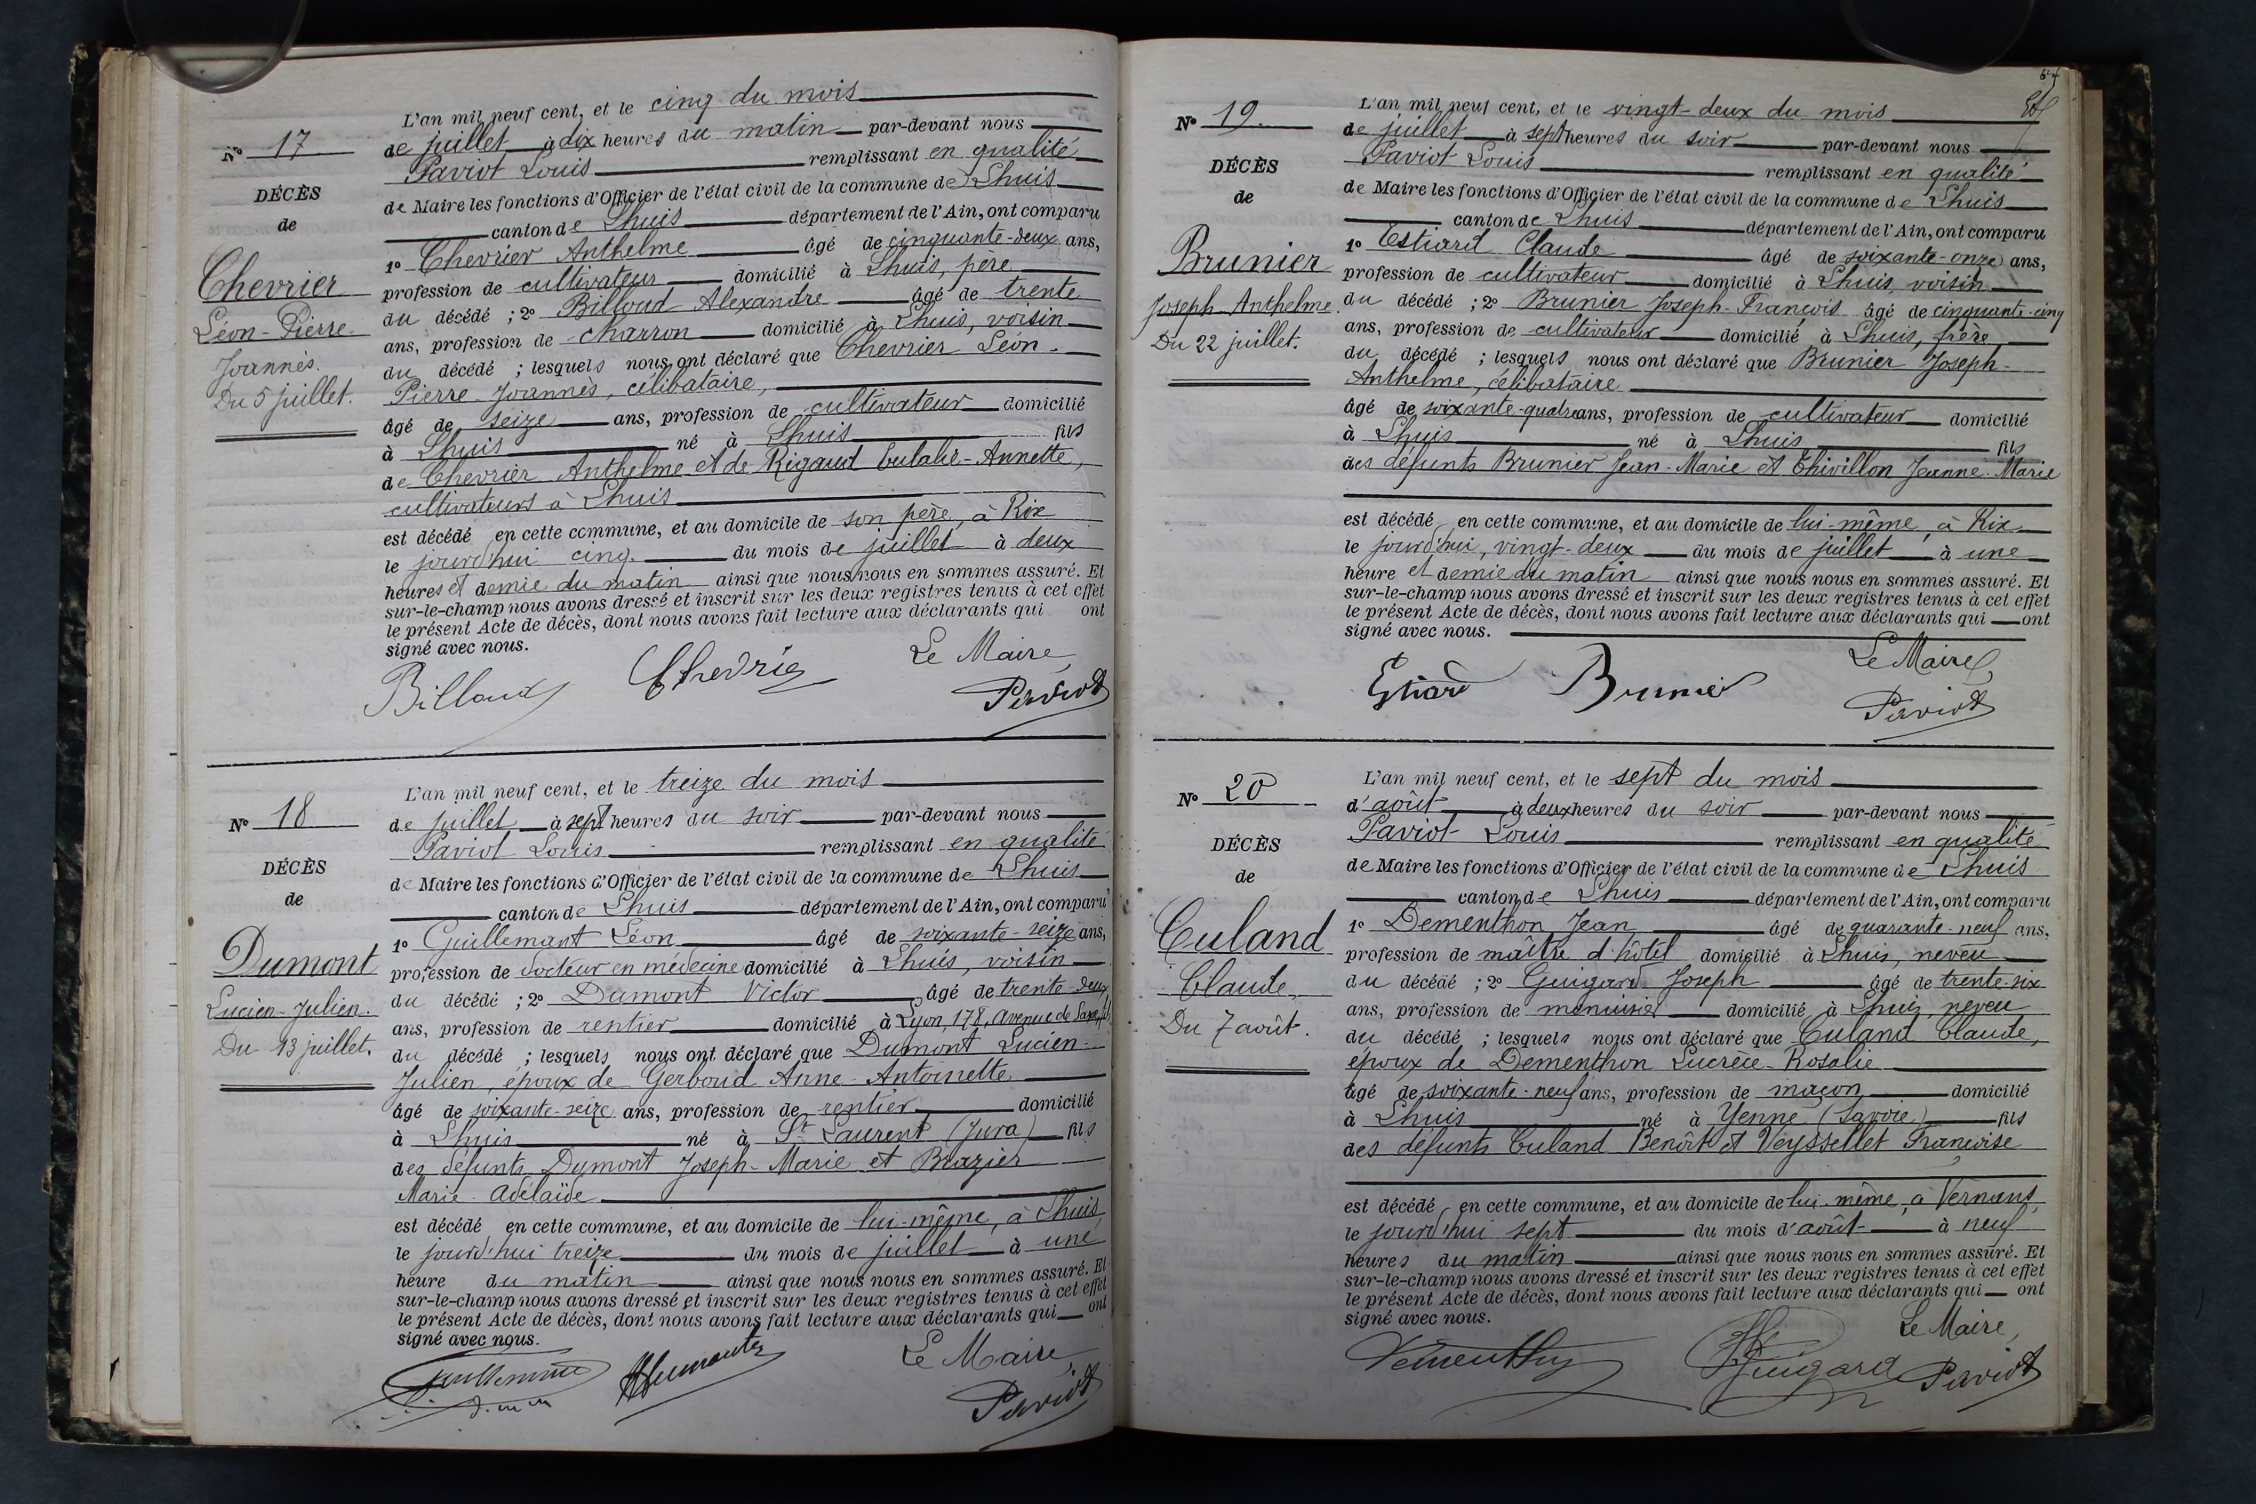 N° 17
DÉCÈS
de
Chevrier
Léon-Pierre
Joannès.
Du 5 juillet.
L'an mil neuf cent, et le cinq du mois
de juillet à dix heures du matin par-devant nous
Paviot Louis remplissant en qualité
de Maire les fonctions d'Officier de l'état civil de la commune de Lhuis
canton de Lhuis département de l'Ain, ont comparu
1° Chevrier Anthelme âgé de cinquante-deux ans,
profession de cultivateur domicilié à Lhuis, père
du décédé ; 2° Billoud Alexandre âgé de trente
ans, profession de charron domicilié à Lhuis, voisin
du décédé ; lesquels nous ont déclaré que Chevrier Léon-
Pierre-Joannès, célibataire,
âgé de seize ans, profession de cultivateur domicilié
à Lhuis né à Lhuis fils
de Chevrier Anthelme et de Rigaud Eulalie-Annette,
cultivateurs à Lhuis
est décédé en cette commune, et au domicile de son père, à Rix
le jourd'hui cinq du mois de juillet à deux
heures et demie du matin ainsi que nous nous en sommes assuré. Et
sur-le-champ nous avons dressé et inscrit sur les deux registres tenus à cet effet
le présent Acte de décès, dont nous avons fait lecture aux déclarants qui ont
signé avec nous.
Le Maire,
Billoud Chevrier Paviot
N° 18
DÉCÈS
de
Dumont
Lucien-Julien.
Du 13 juillet.
L'an mil neuf cent, et le treize du mois
de juillet à sept heures du soir par-devant nous
Paviot Louis remplissant en qualité
de Maire les fonctions d'Officier de l'état civil de la commune de Lhuis
canton de Lhuis département de l'Ain, ont comparu
1° Guillemant Léon âgé de soixante-seize ans,
profession de docteur en médecine domicilié à Lhuis, voisin
du décédé ; 2° Dumont Victor âgé de trente-deux
ans, profession de rentier domicilié à Lyon, 178, avenue de Saxe,
du décédé ; lesquels nous ont déclaré que Dumont Lucien-
Julien, époux de Gerboud Anne-Antoinette
âgé de soixante-seize ans, profession de rentier domicilié
à Lhuis né à St Laurent (Jura) fils
des défunts Dumont Joseph-Marie et Brazier
Marie-Adelaïde
est décédé en cette commune, et au domicile de lui-même, à Lhuis,
le jourd'hui treize du mois de juillet à une
heure du matin ainsi que nous nous en sommes assuré. Et
sur-le-champ nous avons dressé et inscrit sur les deux registres tenus à cet effet
le présent Acte de décès, dont nous avons fait lecture aux déclarants qui ont
signé avec nous.
Le Maire,
Paviot
N° 19
DÉCÈS
de
Brunier
Joseph-Anthelme.
Du 22 juillet.
L'an mil neuf cent, et le vingt-deux du mois
de juillet à sept heures du soir par-devant nous
Paviot Louis remplissant en qualité
de Maire les fonctions d'Officier de l'état civil de la commune de Lhuis
canton de Lhuis département de l'Ain, ont comparu
1° Estiard Claude âgé de soixante-onze ans,
profession de cultivateur domicilié à Lhuis, voisin
du décédé ; 2° Brunier Joseph-François âgé de cinquante-cinq
ans, profession de cultivateur domicilié à Lhuis, frère
du décédé ; lesquels nous ont déclaré que Brunier Joseph-
Anthelme, célibataire
âgé de soixante-quatre ans, profession de cultivateur domicilié
à Lhuis né à Lhuis fils
des défunts Brunier Jean-Marie et Thivillon Jeanne-Marie
est décédé en cette commune, et au domicile de lui-même, à Rix
le jourd'hui, vingt-deux du mois de juillet à une
heure et demie du matin ainsi que nous nous en sommes assuré. Et
sur-le-champ nous avons dressé et inscrit sur les deux registres tenus à cet effet
le présent Acte de décès, dont nous avons fait lecture aux déclarants qui ont
signé avec nous.
Le Maire,
Estiard Brunier Paviot
N° 20
DÉCÈS
de
Culand
Claude,
Du 7 août.
L'an mil neuf cent, et le sept du mois
d'août à deux heures du soir par-devant nous
Paviot Louis remplissant en qualité
de Maire les fonctions d'Officier de l'état civil de la commune de Lhuis
canton de Lhuis département de l'Ain, ont comparu
1° Dementhon Jean âgé de quarante-neuf ans,
profession de maître d'hôtel domicilié à Lhuis, neveu
du décédé ; 2° Guigard Joseph âgé de trente-six
ans, profession de menuisier domicilié à Lhuis, neveu
du décédé ; lesquels nous ont déclaré que Culand Claude,
époux de Dementhon Lucrèce-Rosalie
âgé de soixante-neuf ans, profession de maçon domicilié
à Lhuis né à Yenne (Savoie) fils
des défunts Culand Benoît et Veyssellet Françoise
est décédé en cette commune, et au domicile de lui-même, à Vernans,
le jourd'hui sept du mois d'août à neuf
heures du matin ainsi que nous nous en sommes assuré. Et
sur-le-champ nous avons dressé et inscrit sur les deux registres tenus à cet effet
le présent Acte de décès, dont nous avons fait lecture aux déclarants qui ont
signé avec nous.
Le Maire,
Dementhon Guigard Paviot